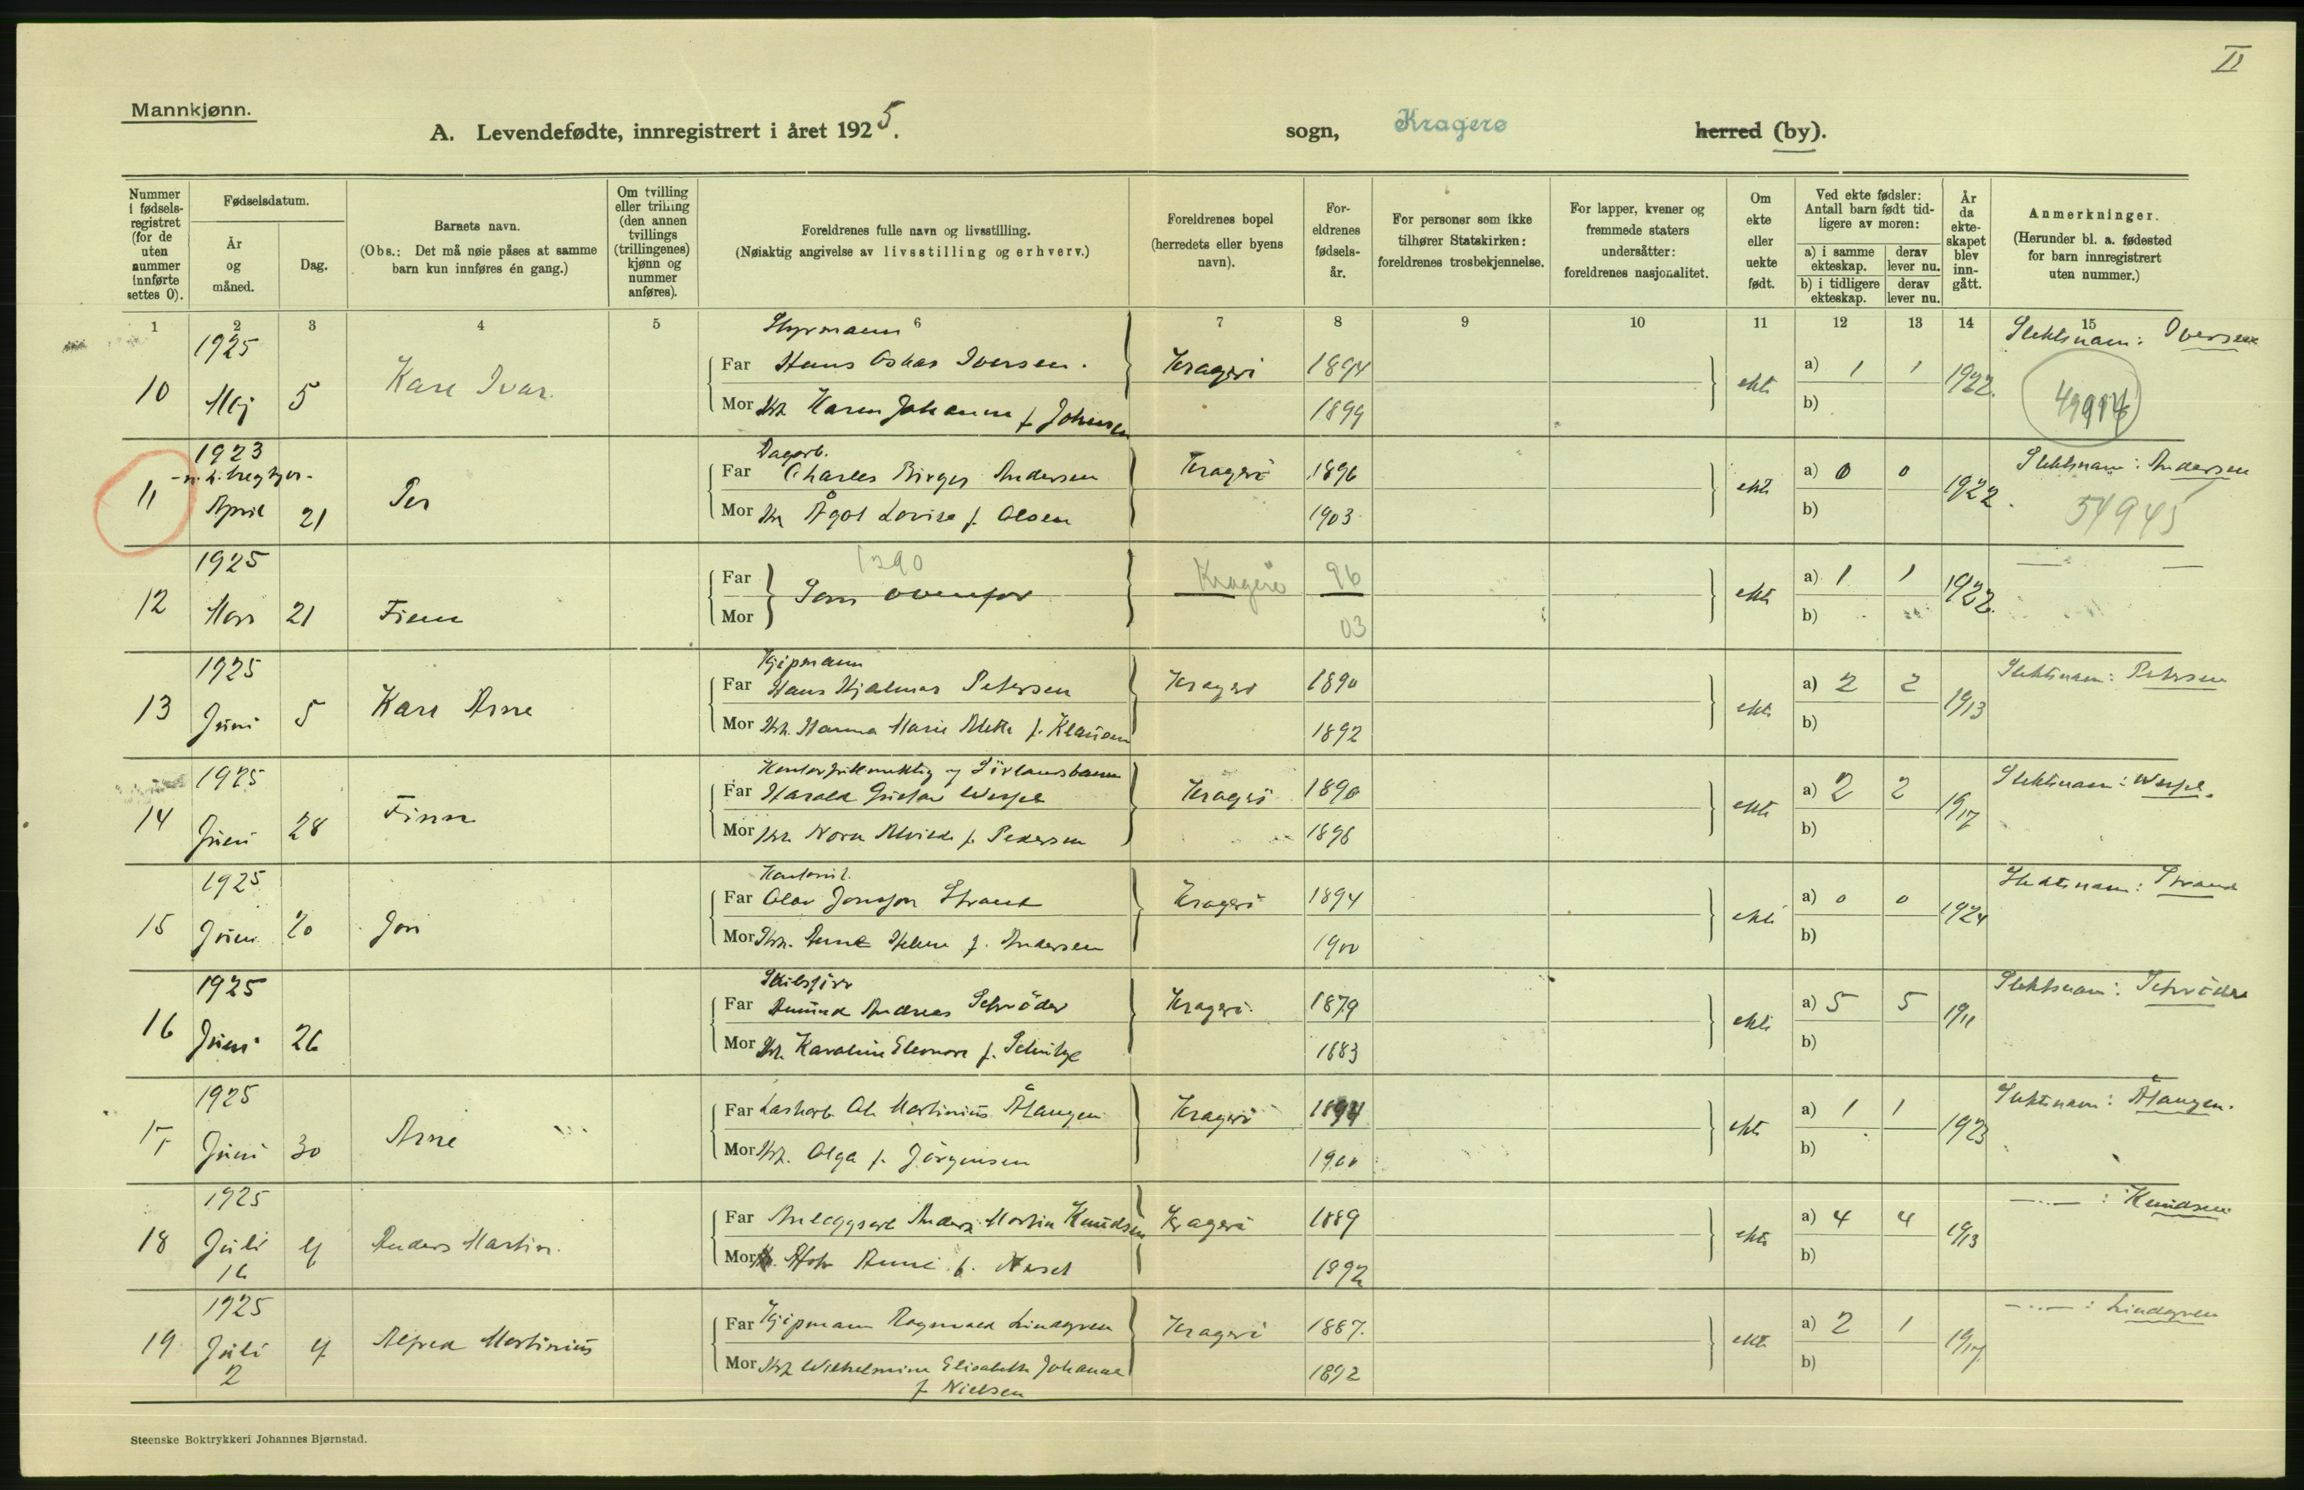 II
Mannkjønn.
A. Levendefødte, innregistrert i året 1925. sogn, Kragerø herred (by).
Nummer i fødselsregistret (for de uten nummer innførte settes 0).
Fødselsdatum.
År og måned.
Dag.
Barnets navn.
(Obs.: Det må nøie påses at samme barn kun innføres én gang.)
Om tvilling eller trilling (den annen tvillings (trillingenes) kjønn og nummer anføres).
Foreldrenes fulle navn og livsstilling.
(Nøiaktig angivelse av livsstilling og erhverv.)
Foreldrenes bopel (herredets eller byens navn).
Foreldrenes fødselsår.
For personer som ikke tilhører Statskirken: foreldrenes trosbekjennelse.
For lapper, kvener og fremmede staters undersåtter: foreldrenes nasjonalitet.
Om ekte eller uekte født.
Ved ekte fødsler: Antall barn født tidligere av moren:
a) i samme ekteskap.
derav lever nu.
b) i tidligere ekteskap.
derav lever nu.
År da ekteskapet blev inngått.
Anmerkninger.
(Herunder bl. a. fødested for barn innregistrert uten nummer.)
1 2 3 4 5 6 7 8 9 10 11 12 13 14 15
1925 Styrmann Slektsnavn: Iversen
10 Mai 5 Kare Ivar Far Hans Oskar Iversen. Kragerö 1894 ekte a) 1 1 1922.
Mor Karen Johanne f. Johnsen 1899 b)
1923 Dagarb. Slektsnavn: Andersen
11 April 21 Per Far Charles Birger Andersen Kragerö 1896 ekte a) 0 0 1922.
Mor Ågot Lovise f. Olsen 1903 b) 54945
1925 1290
12 Mars 21 Finn Far Mor Som ovenfor Kragerø 96 03 ekte a) 1 1 b) 1922.
1925 Kjøpmann Slektsnavn: Petersen
13 Juni 5 Kare Arne Far Hans Hjalmar Petersen Kragerö 1890 ekte a) 2 2 1913
Mor Hanna Marie f. Klausen 1892 b)
1925 Slektsnavn:
14 Juni 28 Finn Far Harald Gustav Kragerö 1890 ekte a) 2 2 1917
Mor Nora Alvilde f. Pedersen 1896 b)
1925 Slektsnavn: Strand
15 Juni 20 Jon Far Olav Strand Kragerö 1894 ekte a) 0 0 1924
Mor Helene f. Andersen 1900 b)
1925 Skibsfører Slektsnavn: Schröder
16 Juni 26 Far Amund Andreas Schröder Kragerö 1879 ekte a) 5 5 1911
Mor Karoline Eleonore f. 1883 b)
1925 Slektsnavn: Ålangen.
17 Juni 30 Arne Far Martinius Ålangen Kragerö 1894 ekte a) 1 1 1923
Mor Olga f. Jörgensen 1900 b)
1925 —"— : Knudsen
18 Juli 4 Anders Martin Far Anders Martin Knudsen Kragerö 1889 ekte a) 4 4 1913
16 Mor 1892 b)
1925 —"— : Lindgren
19 Juli 4 Alfred Martinius Far Kjøpmann Ragnvald Lindgren Kragerö 1887. ekte a) 2 1 1917
2 Mor Wilhelmine Elisabeth Johanne f Nielsen 1892 b)
Steenske Boktrykkeri Johannes Bjørnstad.